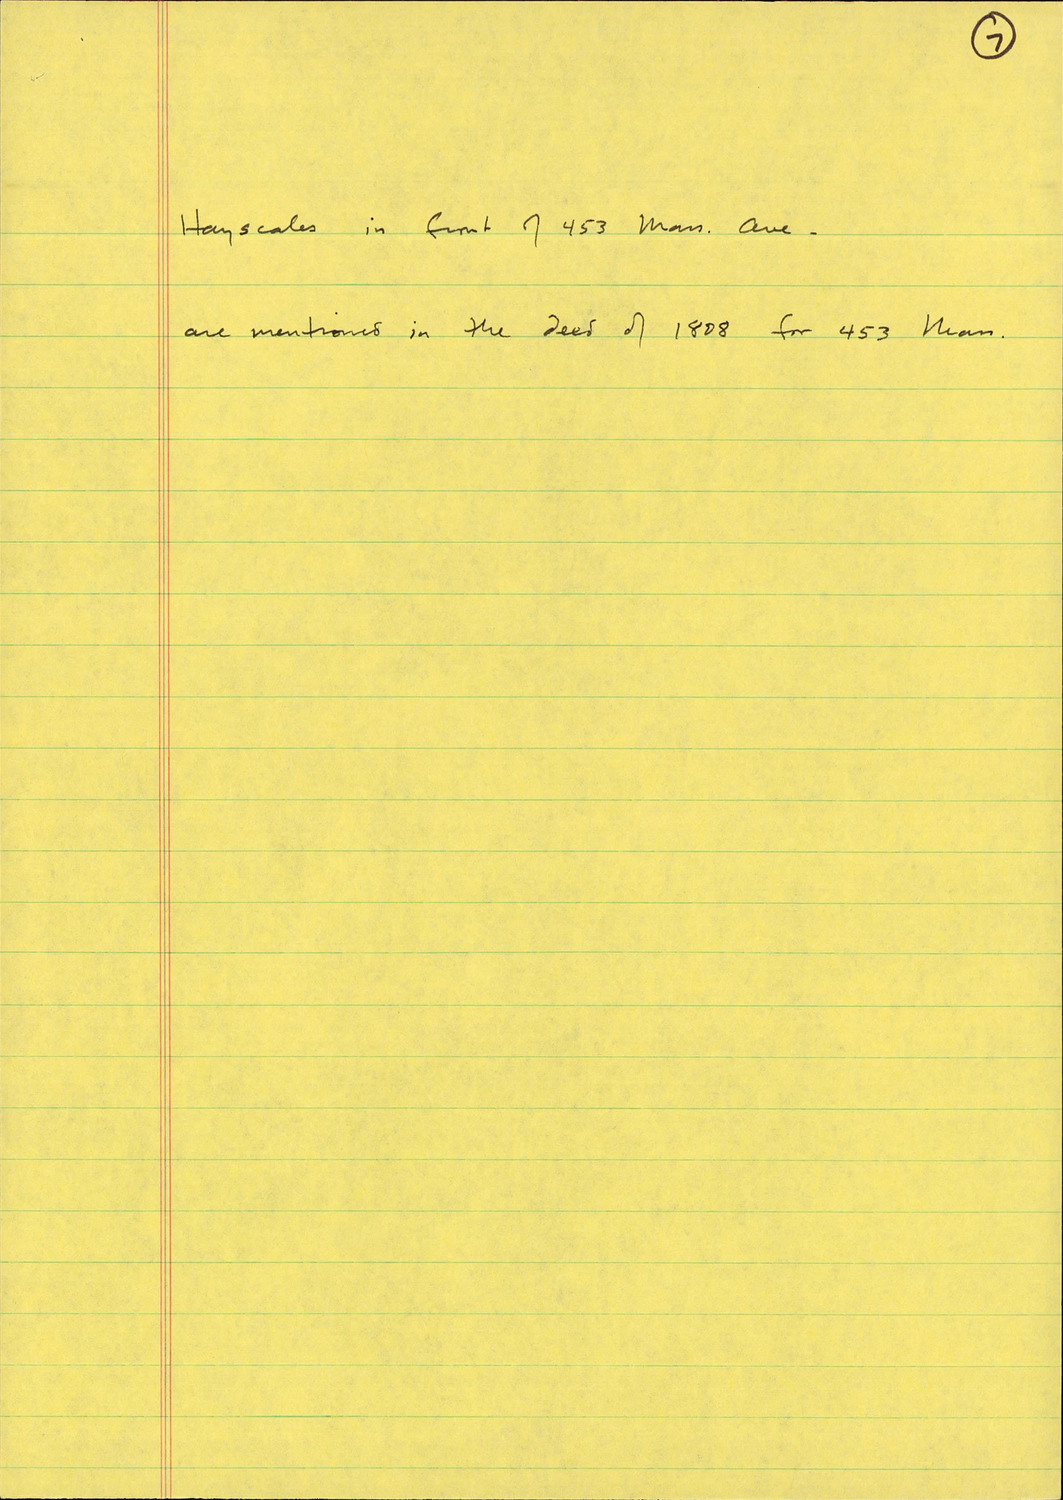 7
Hayscales in front of 453 Mass. Ave.
are mentioned in the deed of 1808 for 453 Mass.